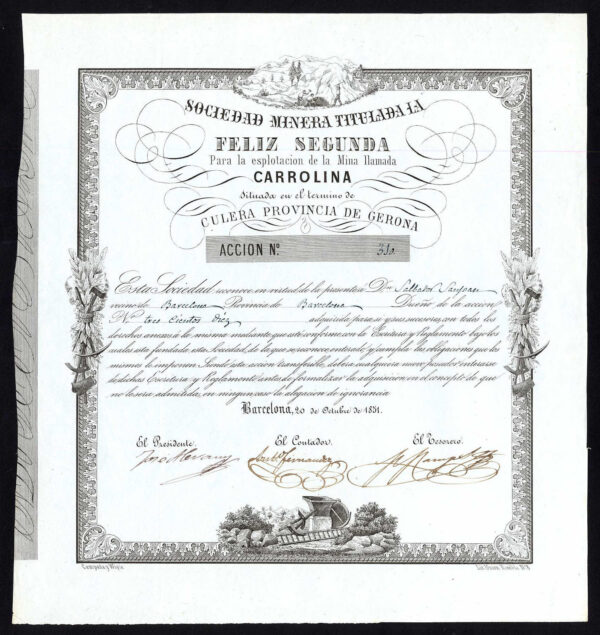 SOCIEDAD MINERA TITULADA LA
FELIZ SEGUNDA
Para la esplotacion de la Mina llamada
CARROLINA
Situada en el termino de
CULERA PROVINCIA DE GERONA
ACCION Nº 310
Esta Sociedad reconoce en virtud de la presente a Dn Salbador Sanjoan
vecino de Barcelona Provincia de Barcelona Dueño de la accion
Nº tres Cientos Diez adquirida para si y sus sucesores, con todos los
derechos anexos á la misma mediante que esté conforme con la Escritura y Reglamento bajo los
cuales está fundada esta Sociedad, de lo que se reconoce enterado, y cumpla las obligaciones que los
mismos le imponen. Siendo esta accion transferible, deberá cualquiera nuevo poseedor enterarse
de dichas Escritura y Reglamento antes de formalizar la adquisicion en el concepto de que
no le sera admitida, en ningun caso la alegacion de ignorancia
Barcelona, 20 de Octubre de 1851.
El Presidente. El Contador. El Tesorero.
José Fernandez